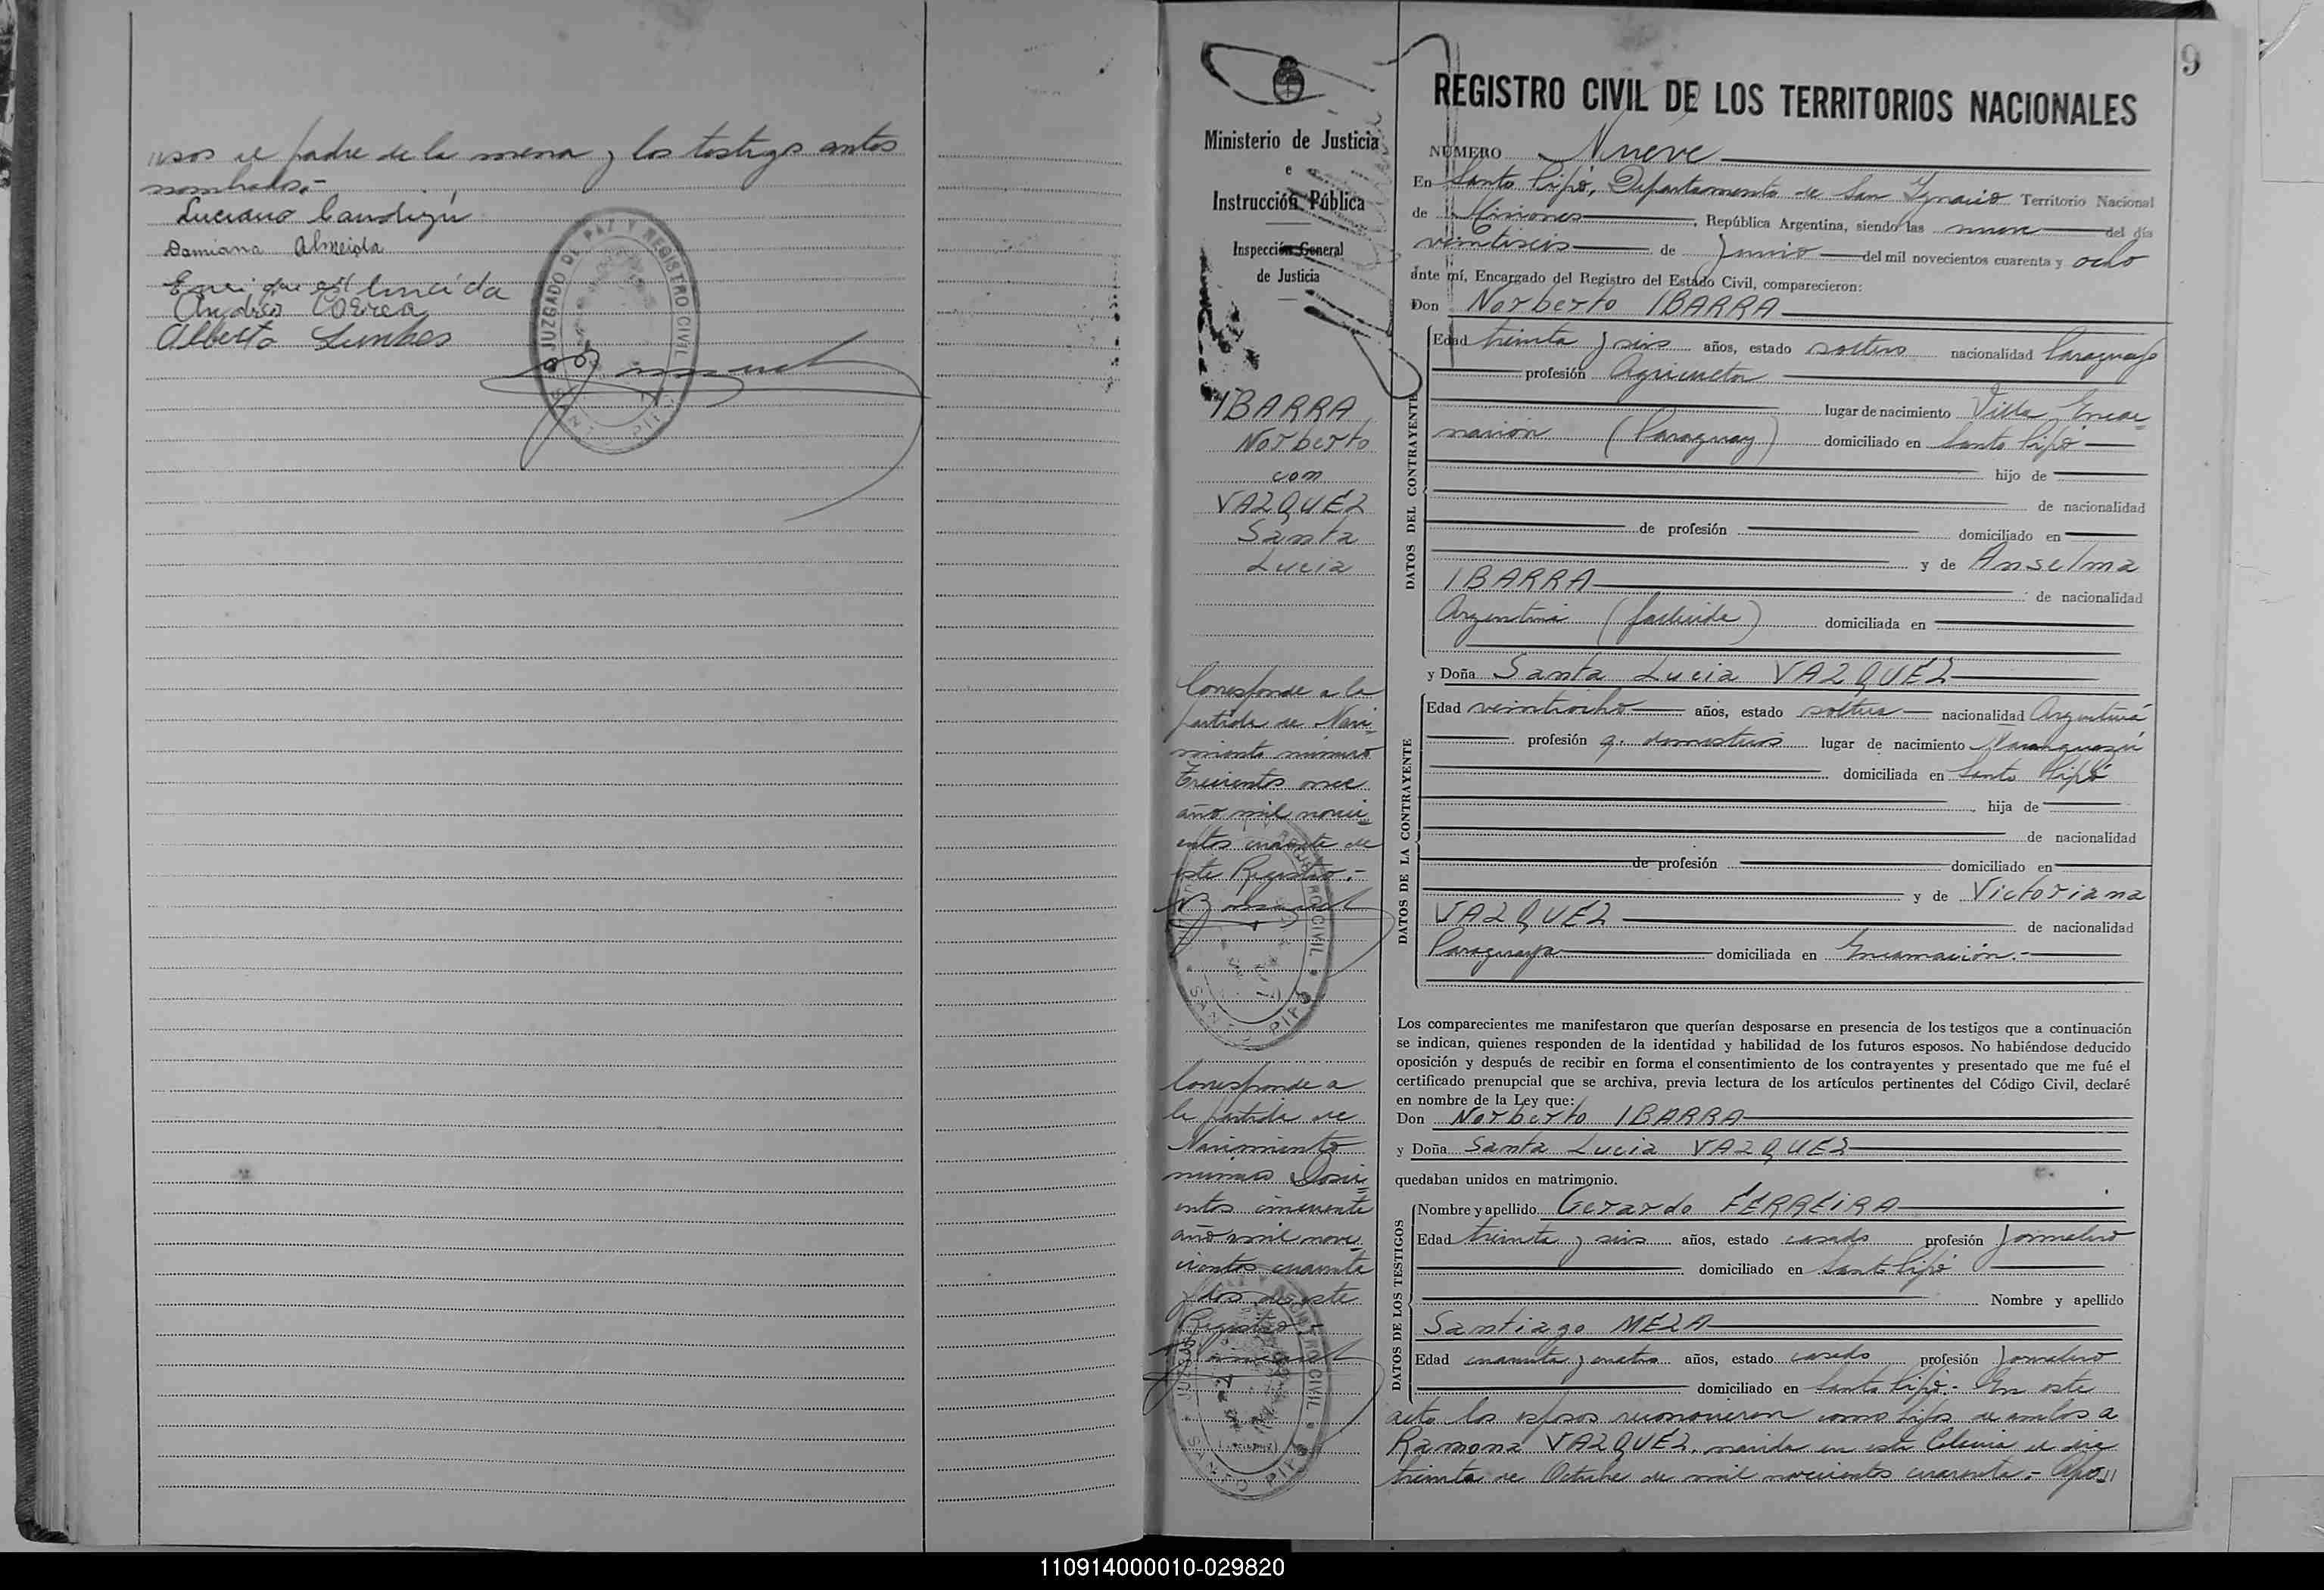 usos el padre de la menor y los testigos antes
nombrados.-
Luciano Candiguí
Damiana Almeida
Andrés Correa
Alberto
JUZGADO DE PAZ Y REGISTRO CIVIL
SANTO PIPÓ
9
Ministerio de Justicia
e
Instrucción Pública
Inspección General
de Justicia
IBARRA
Norberto
con
VAZQUEZ
Santa
Lucia
Corresponde a la
partida de Naci-
miento número
Trecientos once
año mil novecie-
entos cuarenta de
este Registro.-
REGISTRO CIVIL
SANTO PIPÓ
Corresponde a
la partida de
Nacimiento
numero Doscie-
entos cincuenta
año mil nove-
cientos cuarenta
y dos de este
Registro.-
JUZGADO DE PAZ Y REGISTRO CIVIL
SANTO PIPÓ
REGISTRO CIVIL DE LOS TERRITORIOS NACIONALES
NÚMERO Nueve
En Santo Pipó, Departamento de San Ignacio Territorio Nacional
de Misiones, República Argentina, siendo las nueve del día
veintiseis de Junio del mil novecientos cuarenta y ocho
ante mí, Encargado del Registro del Estado Civil, comparecieron:
Don Norberto IBARRA
DATOS DEL CONTRAYENTE
Edad treinta y seis años, estado soltero nacionalidad Paraguayo
profesión Agricultor
lugar de nacimiento Villa Encar=
nación (Paraguay) domiciliado en Santo Pipó
hijo de
de nacionalidad
de profesión domiciliado en
y de Anselma
IBARRA de nacionalidad
Argentina (fallecida) domiciliada en
y Doña Santa Lucia VAZQUEZ
DATOS DE LA CONTRAYENTE
Edad veintiocho años, estado soltera nacionalidad Argentina
profesión q. domesticos lugar de nacimiento
domiciliada en Santo Pipó
hija de
de nacionalidad
de profesión domiciliado en
y de Victoriana
VAZQUEZ de nacionalidad
Paraguaya domiciliada en Encarnación.-
Los comparecientes me manifestaron que querían desposarse en presencia de los testigos que a continuación
se indican, quienes responden de la identidad y habilidad de los futuros esposos. No habiéndose deducido
oposición y después de recibir en forma el consentimiento de los contrayentes y presentado que me fué el
certificado prenupcial que se archiva, previa lectura de los artículos pertinentes del Código Civil, declaré
en nombre de la Ley que:
Don Norberto IBARRA
y Doña Santa Lucia VAZQUEZ
quedaban unidos en matrimonio.
DATOS DE LOS TESTIGOS
Nombre y apellido Gerardo FERREIRA
Edad treinta y seis años, estado casado profesión Jornalero
domiciliado en Santo Pipó
Nombre y apellido
Santiago MEZA
Edad cuarenta y cuatro años, estado casado profesión Jornalero
domiciliado en Santo Pipó.- En este
acto los esposos reconocieron como hijos de ambos a
Ramona VAZQUEZ, nacida en esta Colonia el dia
treinta de Octubre de mil novecientos cuarenta.-
110914000010-029820